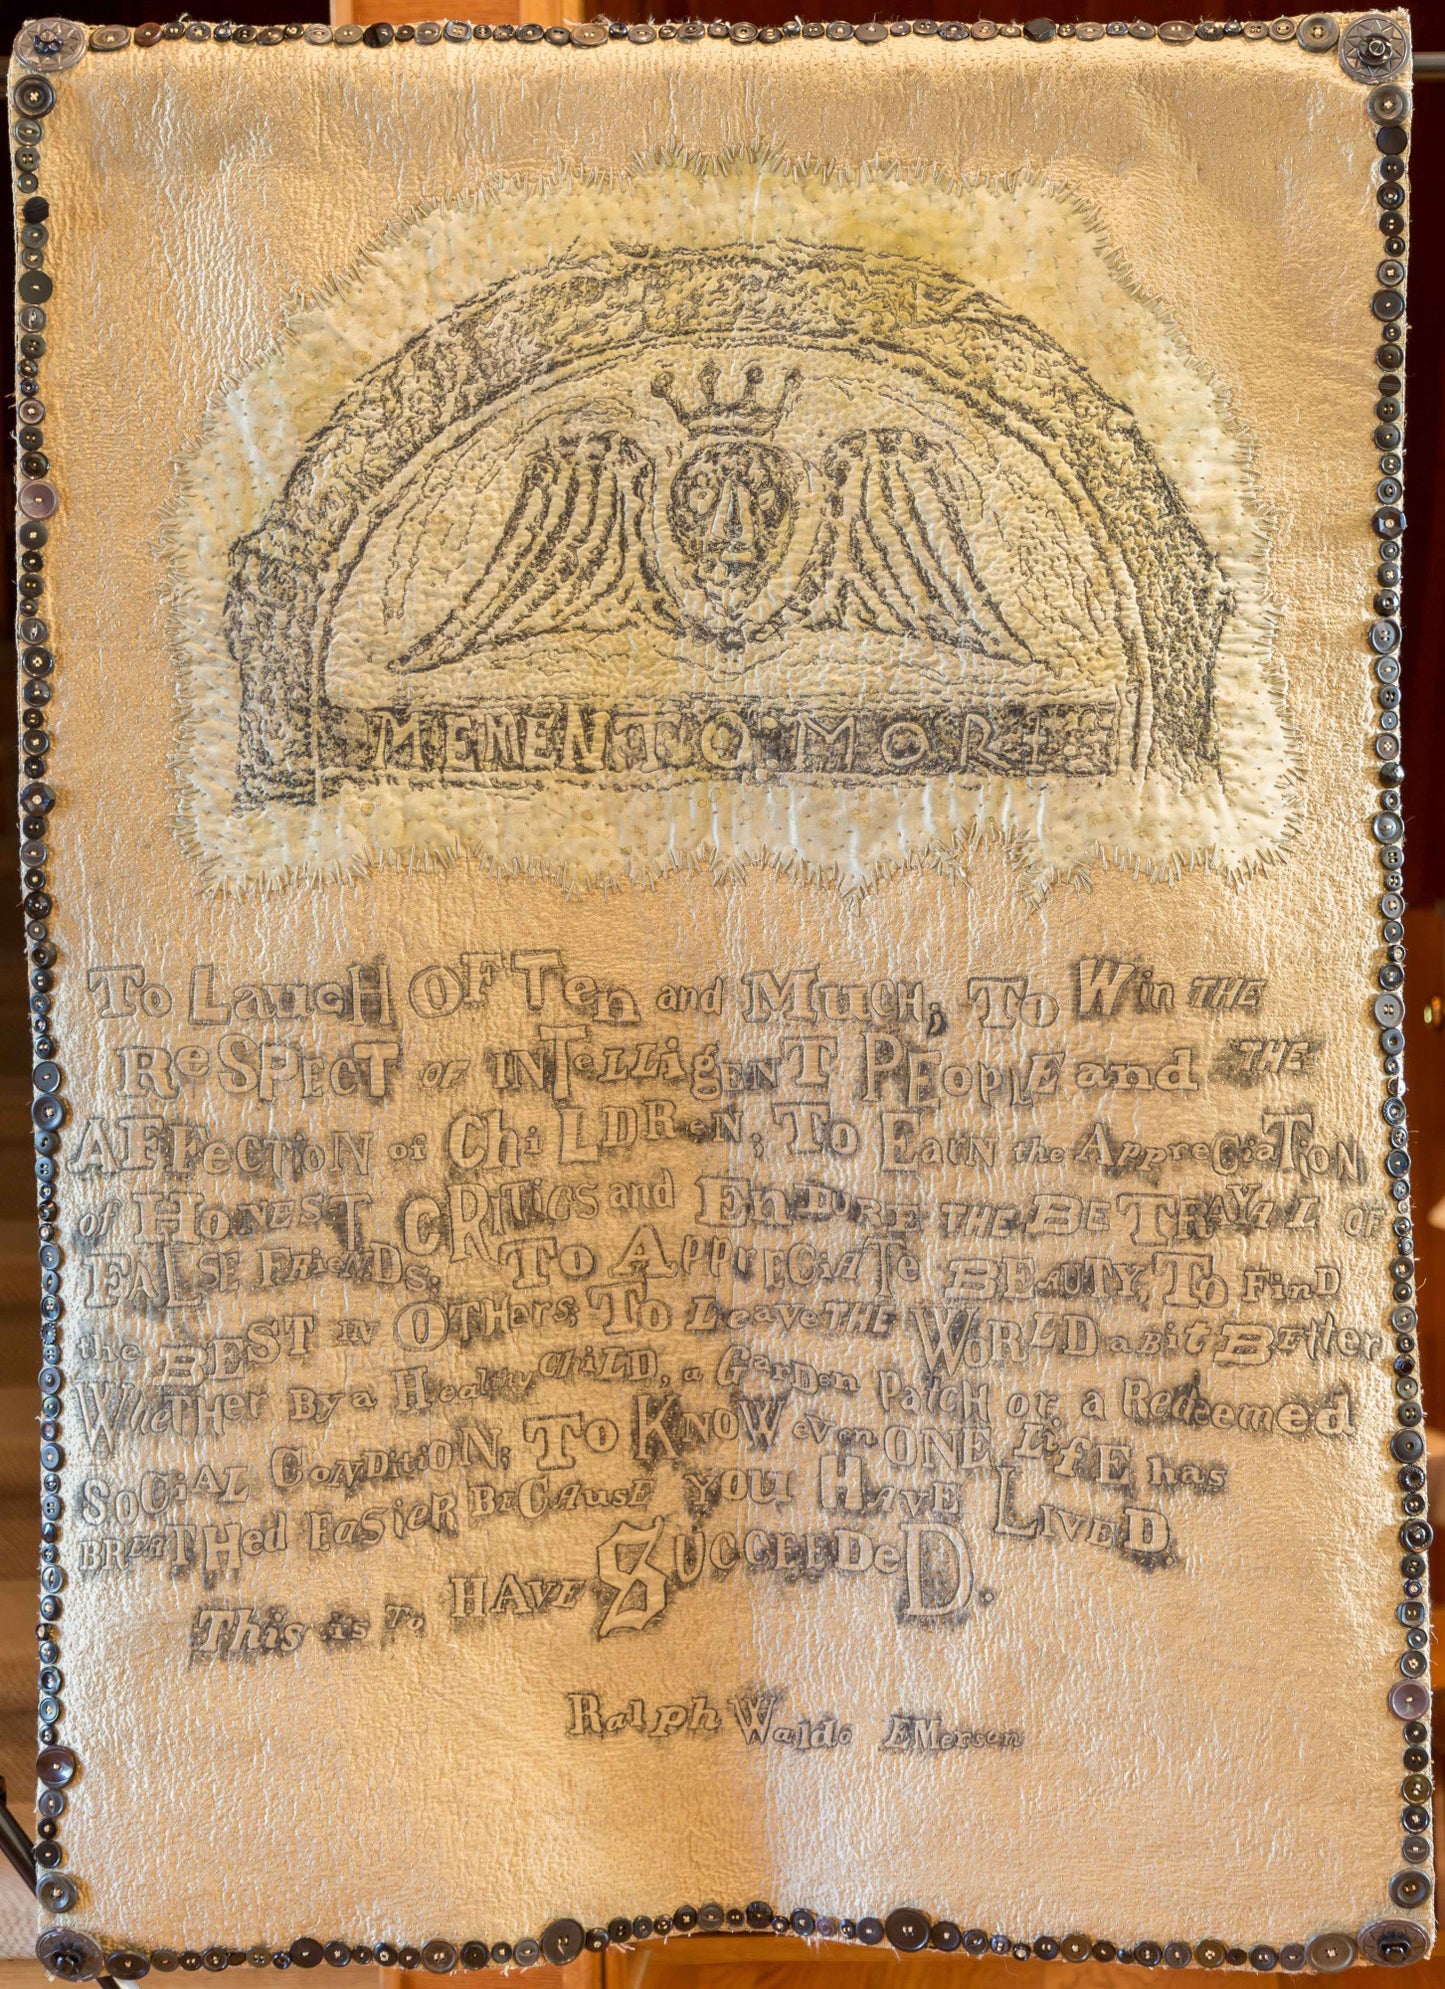 MEMENTO:MORI:
To LaugH OFTen and MuCH; To Win THE
ReSPECT OF INTeLLigENT PEOplE and THE
AFFeCTiON of ChiLDRen; TO EarN the AppreCiaTiON
of HoNEST CRiTiCS and EnDURE THE BETRAYAL OF
FALSE FRieNDS; To APPRECiATe BEAUTY, To FinD
the BEST IN OTHers; To LeaveTHE WORLD aBit BETter
WheTHer By a Healthy CHiLD, a GarDen PatCH or a Redeemed
SOCiAL CoNDitioN; To KNOW even ONE LifE has
BREATHed EaSieR BECAuSE YOU HAVE LIVED.
This is To HAVE SUCCEEDeD.
Ralph Waldo EMerson